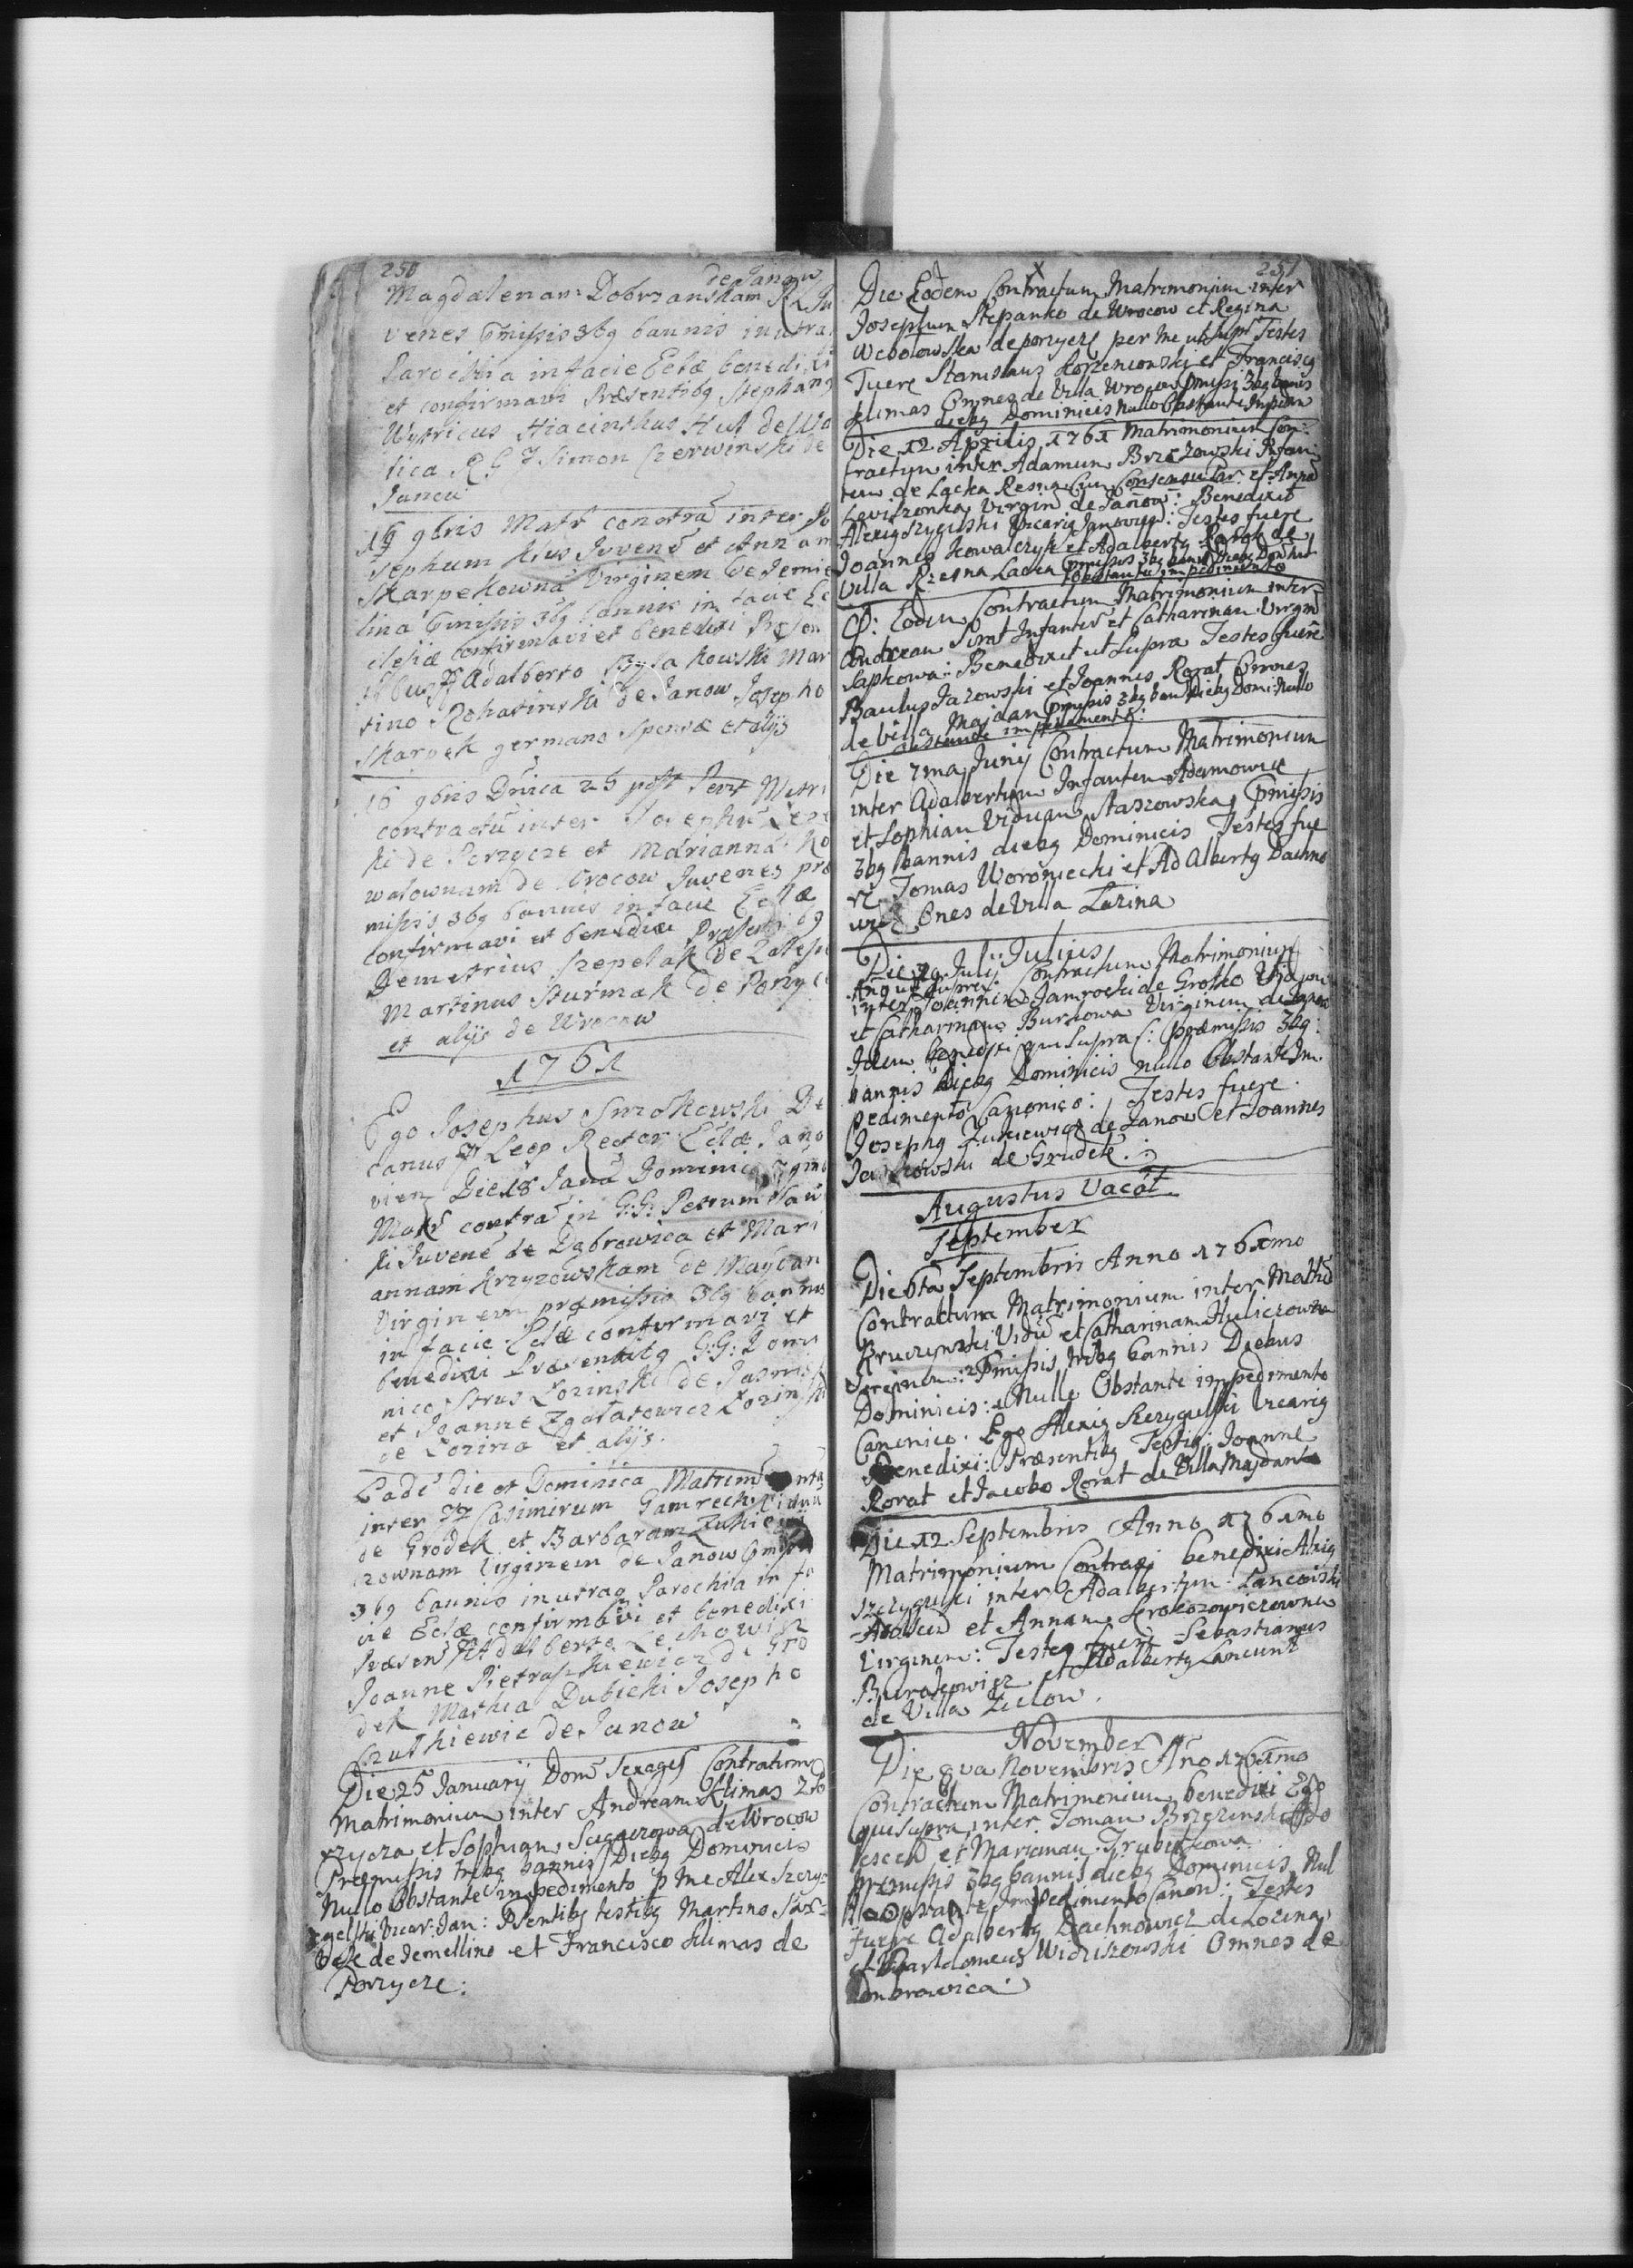 250
de Janow
Magdalenam Dobrzanskam Ju
venes pmissis 3bg bannis in utra
Parochia in facie Eclæ benedixi
et confirmavi Præsentibg Stephang
Wytricus Hiacinthus Hut de Wo
lica Simon Czerwinski de
Janow
16 9bris Matr contra inter Jo
sephum Kius Juvene et Annam
Skarpekowna Virginem de Jemie
lina pmissis 3bg bannis in facie Ec
clesiæ confirmavi et benedixi Præsen
tibus Adalberto Bysakowski Mar
tino Rohatinski de Janow Josepho
Skarpek germano sponsæ et alijs
16 9bris Dnica 25 post Pent Matri
contractu inter Josephu
ki de Porzycze et Marianna Ko
walownam de Wrocow Juvenes præ
missis 3bg bannis in facie Eclæ
confirmavi et benedixi Præsentibg
Demetrius Szepelak de Zalesie
Martinus Sturmak de Porzyce
et alijs de Wrocow
1761
Ego Josephus Smzokowski De
canus Leop Rector Eclæ Jano
vien Die 18 Janu Dominica
Matr contra in G:G: Petrum
ki Juvene de Dąbrowica et Mari
annam Krzyzowskam de Maydan
Virginem præmissis 3bg bannis
in facie Eclæ confirmavi et
benedixi Præsentibg G:G: Domi
nico Strus Lozinski de Jasnis
et Joanne Zgolatowicz Lozinski
de Lozina et alijs.
Eade die et Dominica Matrim contra
inter Casimirum Gamrecki Viduu
de Grodek et Barbaram Zutkiewi
czownam Virginem de Janow pmissis
3bg bannis in utraq Parochia in fa
cie Eclæ confirmavi et benedixi
Præsen Adalberto Lechowicz
Joanne Pietraszkiewicz de Gro
dek Mathia Dubicki Josepho
Czutkiewic de Janow
Die 25 January Dom Sexages Contractum
Matrimonium inter Andream Klimas
rzycza et Sophiam Sugierowa de Wrocow
Præmissis tribg bannis Diebg Dominicis
Nullo Obstante impedimento p me Alex Szczy
gelski Vicar: Jan: Psentibg testibg Martino
de Jemellino et Francisco Klimas de
Porzycze:
251
Die Eodem Contractum Matrimonium inter
Josephum Stepanko de Wrocow et Regina
Webolowska de porzycz per me ut supr Testes
Fuere Stanislaus Korzeniowski et Franciscg
Klimas Omnes de Villa Wrocow pmissis 3bg banis
diebg Dominicis Nullo Obstante Impedim
Die 12 Aprilis 1761 Matrimonium Con
tractum inter Adamum Brzezowski Infan
tem de Lacka Resna cum Consensu Par: et Anna
Leviszonka Virgin de Janow: Benedixit
Alexig Szczygelski Vicarig Janovien: Testes fuere
Joannes Kowalczyk et Adalbertg Rarok de
Villa Rzesna Lacka pmissis 3bg bannis diebg Dominic
Obstante impedimento
D: Eodem Contractum Matrimonium inter
Andream Sirat Infantem et Catharinam Virgin
Sapkowa: Benedixit ut Supra Testes fuere
Paulus Jazowski et Joannes Rorat Omnes
de Villa Majdan pmissis 3bg ban Diebg Domi: Nullo
Obstante impedimento:
Die 7ma Junij Contractum Matrimonium
inter Adalbertum Infantem Adamowicz
et Sophiam Viduam Staszowska pmissis
3bg bannis diebg Dominicis Testes fue
re Tomas Woroniecki et Ad Albertg Dachno
wicz Ones de Villa Lozina
Julius
Die 29 Julij Contractum Matrimonium
Anoque supra
inter Joannem Jamroski de Grotko Viduum
et Catharinam Burkowa Virginem de Janow
Idem Benedixi qui Supra: præmissis 3bg:
bannis diebg Dominicis nullo Obstante Im
pedimento Canonico: Testes fuere
Josephg Zutkiewicz de Janow et Joannes
Jamrowski de Grudek:
Augustus Vacat
September
Die 6ta Septembris Anno 1761mo
Contractum Matrimonium inter Mathe
Kruczynski Vidu et Catharinam Huliczowna
Virginem: Pmissis tribg bannis Diebus
Dominicis: Nullo Obstante impedimento
Canonico. Ego Alexig Szczygelski Vicarig
Benedixi: Præsentibg Testig: Joanne
Rorat et Jacobo Rorat de Villa Majdan
Die 12 Septembris Anno 1761mo
Matrimonium Contraxi benedixi Alexig
Szczygelski inter Adalbertum Lancowski
et Annam
Virginem: Testes fuere Sebastianus
et Adalbertg Lancunt
de Villa Zielow.
November
Die 8va Novembris Ano 1761mo
Contractum Matrimonium benedixi Ego
qui Supra inter Toman Brzezinski Ado
lescen et Mariannam Trubitkowa
præmissis 3bg bannis diebg Dominicis Nul
lo Obstante Impedimento Canon: Testes
fuere Adalbertg Dachnowicz de Lozina,
et Bartolomeus Widziszowski Omnes de
Dombrowica